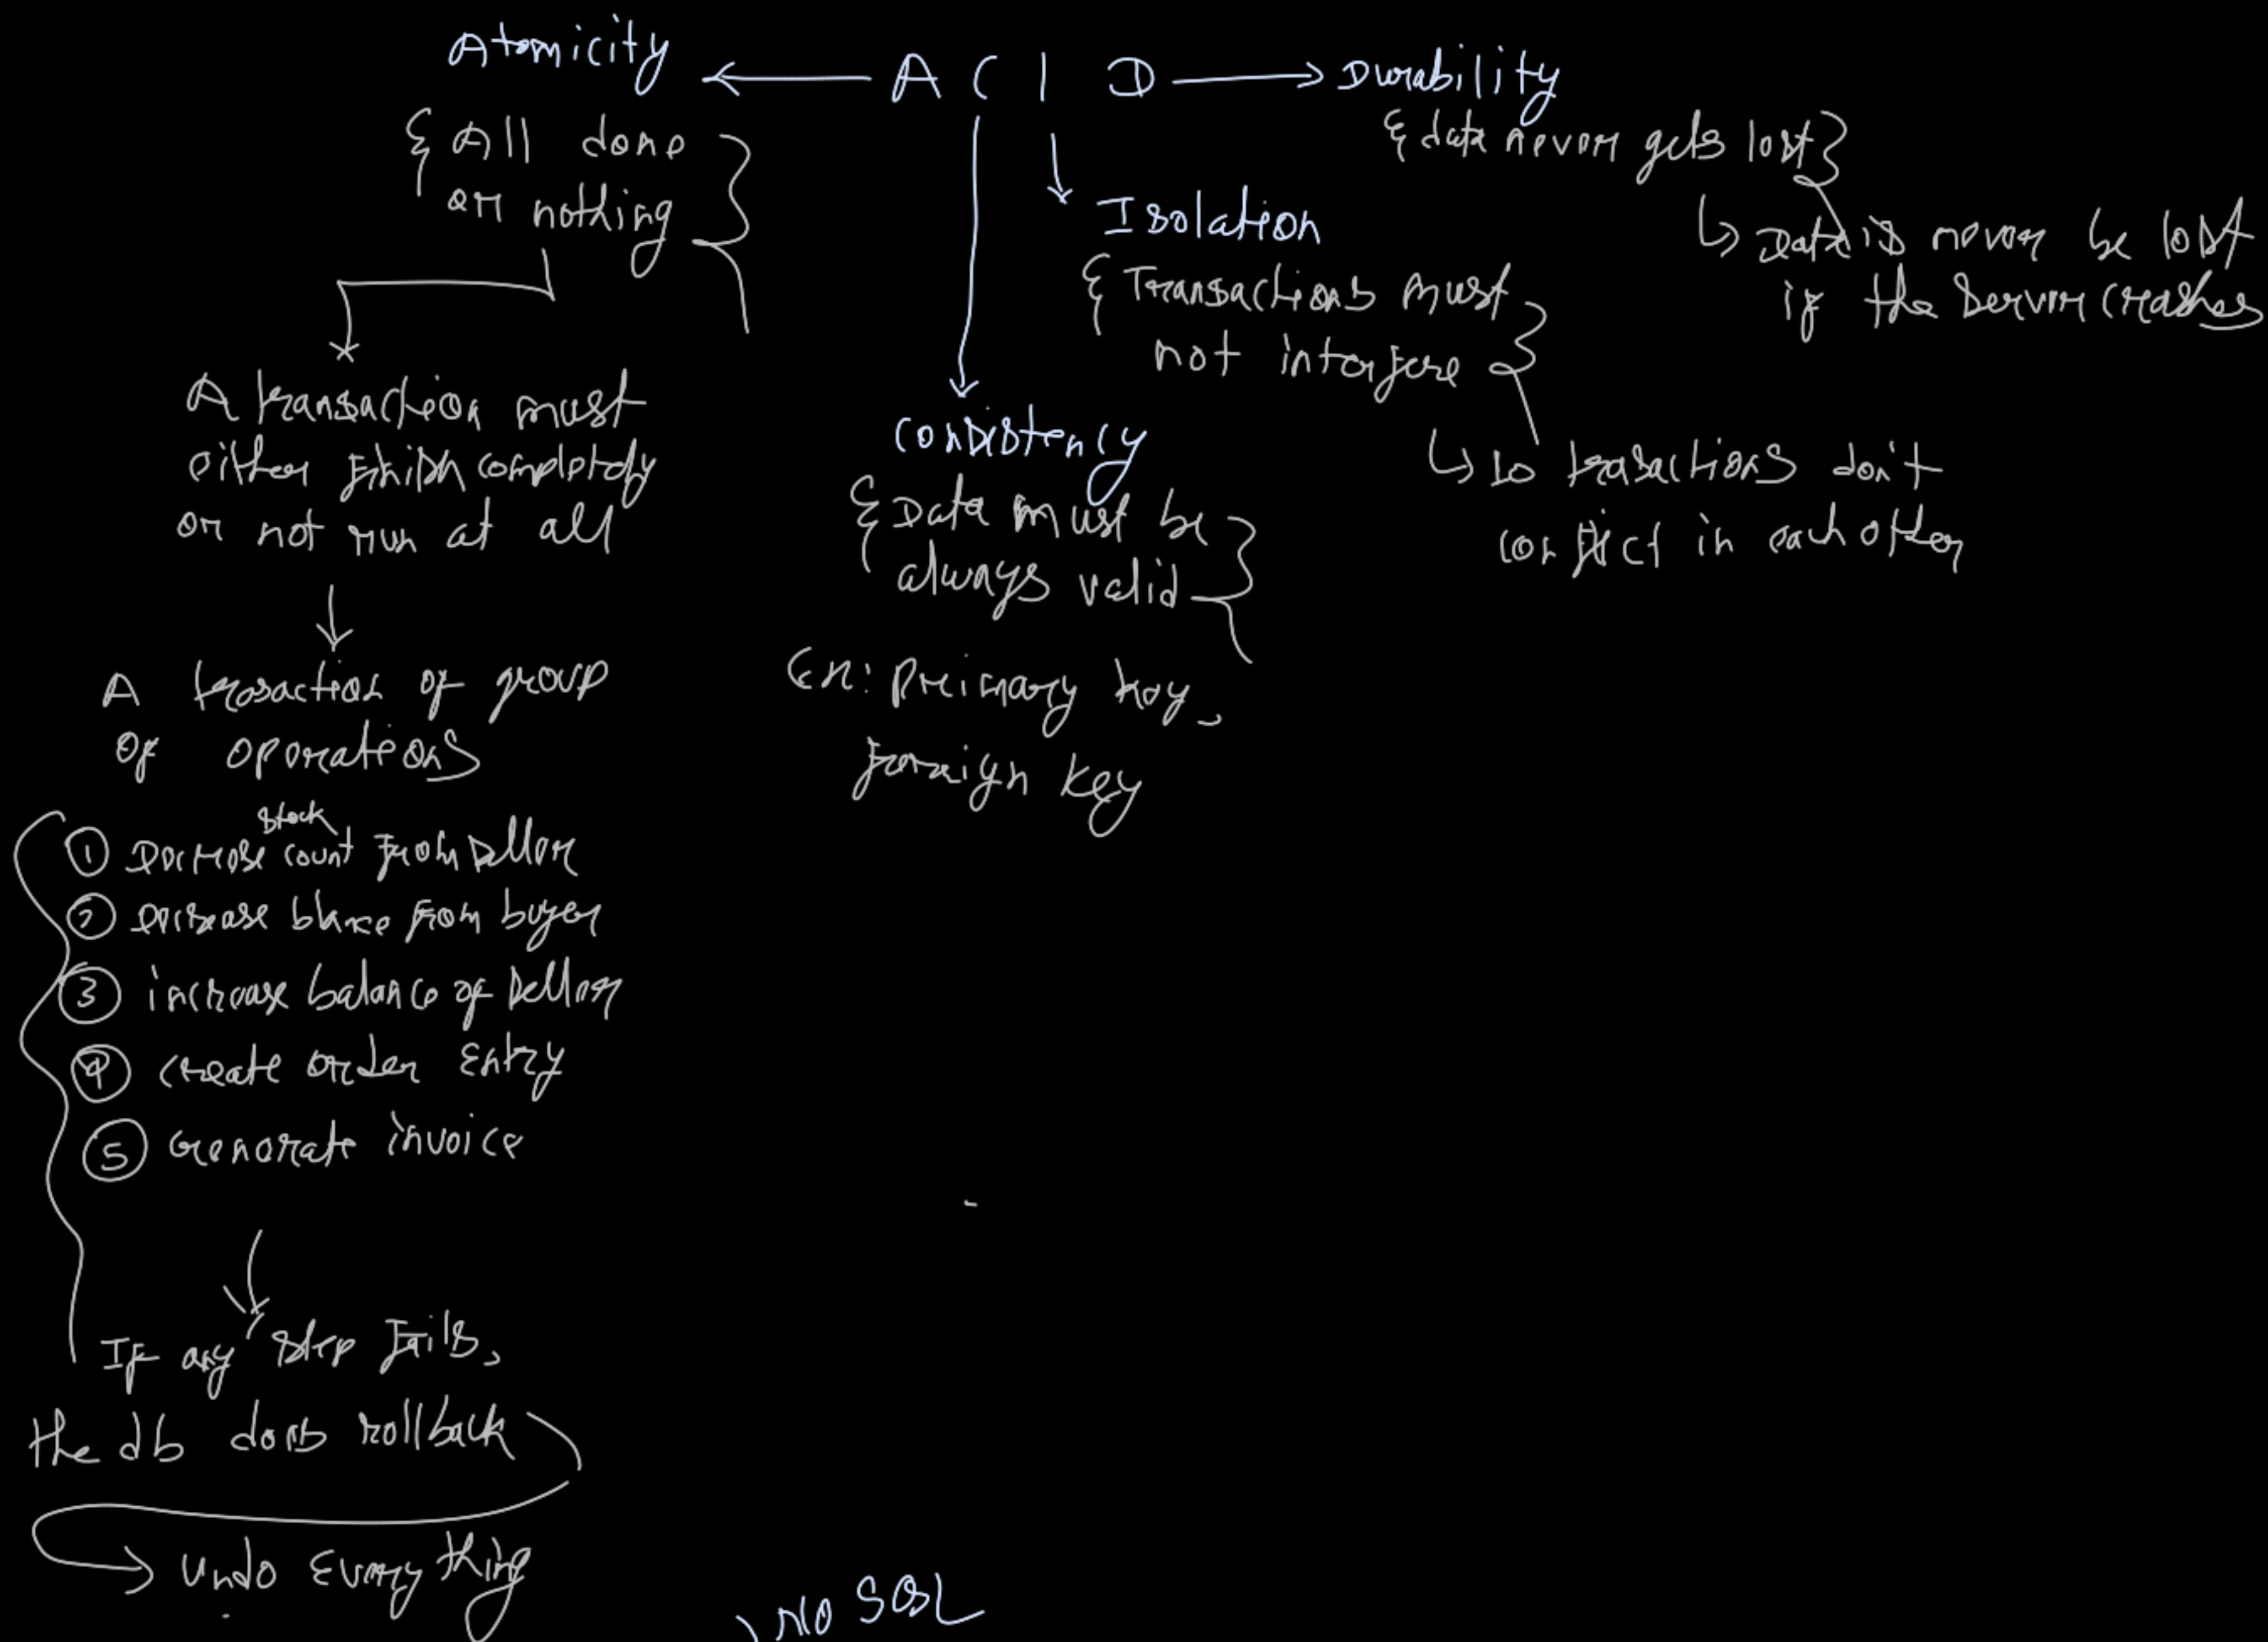 Atomicity ← A C I D → Durability
{ All done
or nothing }
A transaction must
either finish completely
or not run at all
A trosaction of group
of operations
① Decrease stock count from seller
② Decrease blance from buyer
③ increase balance of seller
④ create order entry
⑤ Generate invoice
If any step fails,
the db does rollback
→ undo everything
Consistency
{ Data must be
always valid }
Ex: Primary key,
foreign key
Isolation
{ Transactions must
not interfere }
↳ so trasactions don't
conflict in each other
{ data never gets lost }
↳ Data is never be lost
if the server crashes
NO SQL